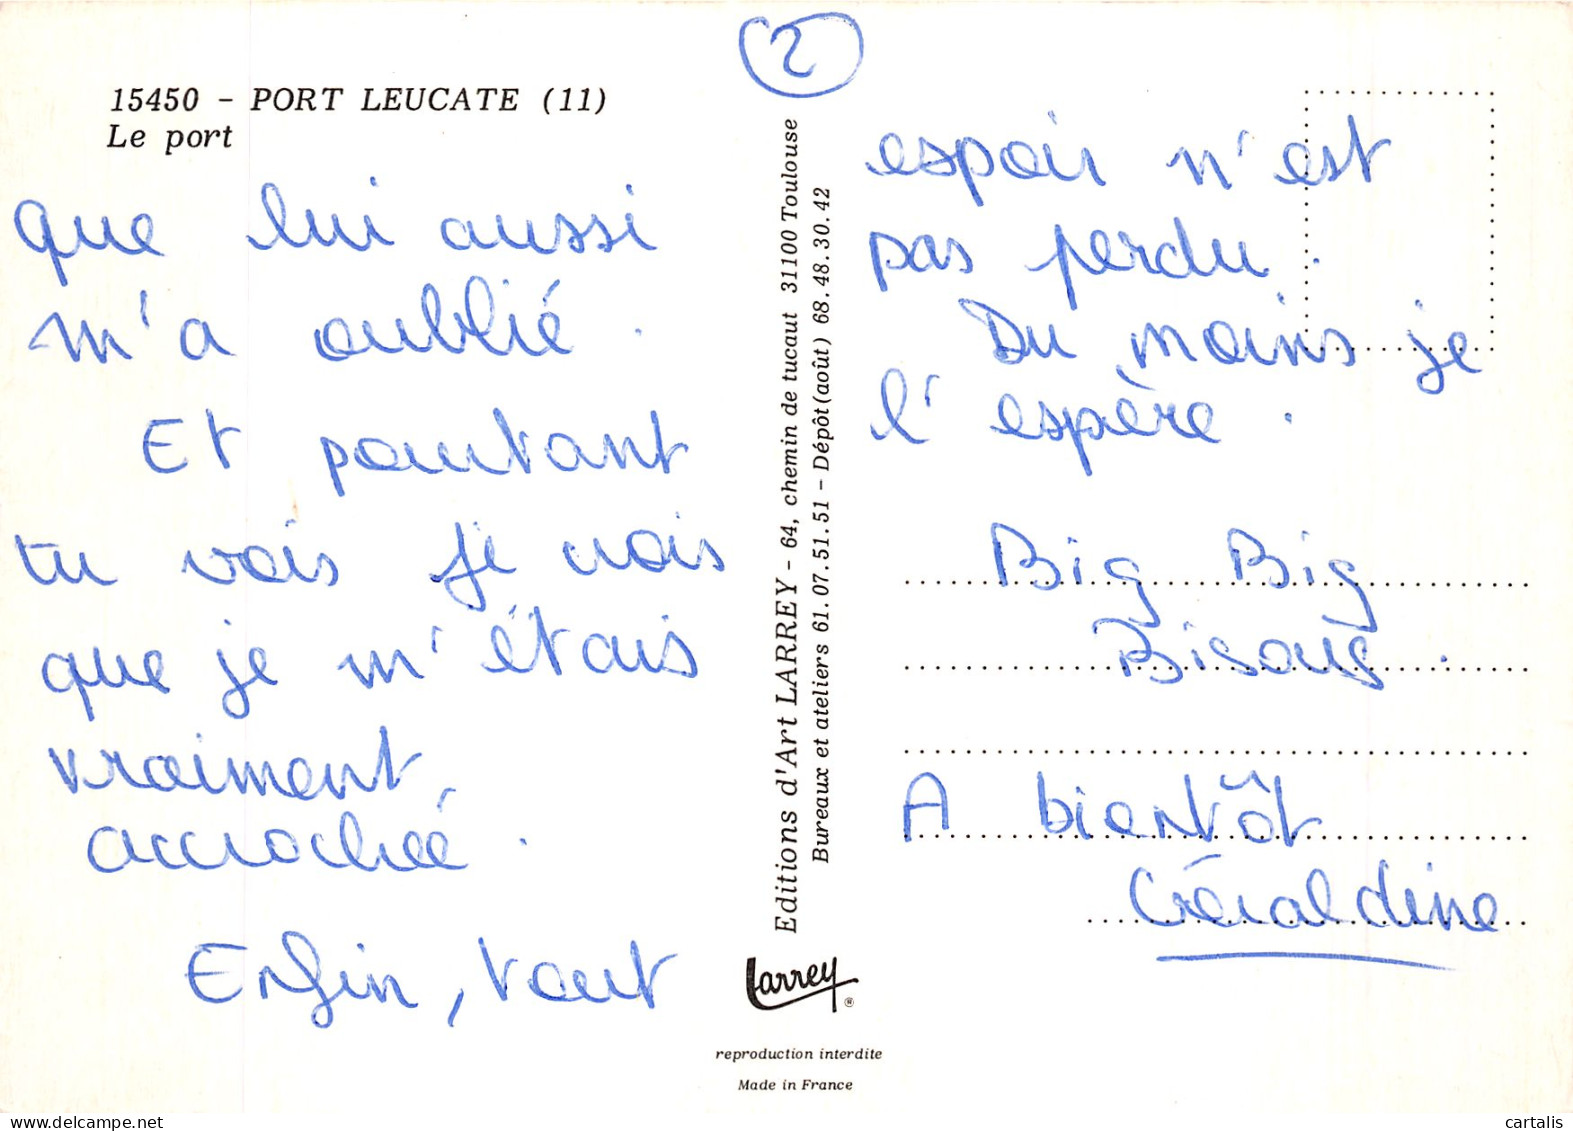 2
15450 - PORT LEUCATE (11)
Le port
que lui aussi
m'a oublié.
Et pourtant
tu vois je crois
que je m'étais
vraiment
accrochée.
Enfin, tout
Editions d'Art LARREY - 64, chemin de tucaut 31100 Toulouse
Bureaux et ateliers 61.07.51.51 - Dépôt (août) 68.48.30.42
Larrey ®
reproduction interdite
Made in France
espoir n'est
pas perdu.
Du moins je
l'espère.
Big Big
Bisous.
A bientôt
Géraldine
cartalis